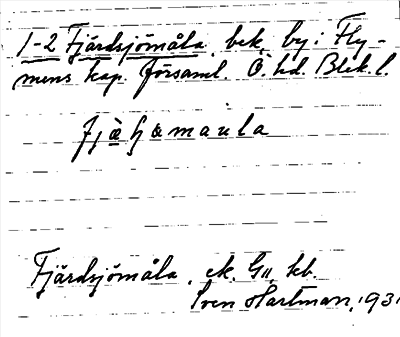 1-2 Fjärdsjömåla, bek. by i Fly-
mens kap. församl. Ö. hd. Blek. l.
Fjärdsjömåla, ek. G11, kb.
Sven Hartman, 193